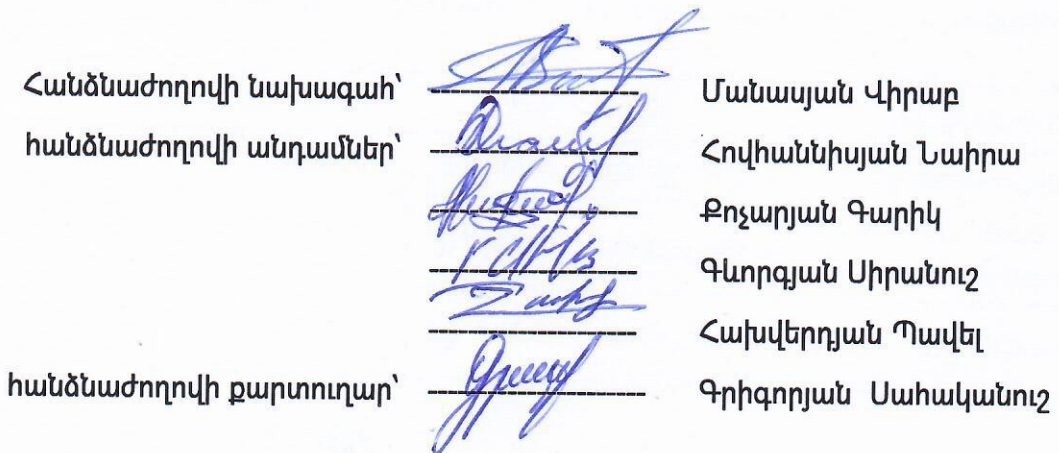 Հանձնաժողովի նախագահ՝ ---------------------- Մանասյան Վիրաբ
հանձնաժողովի անդամներ՝ ---------------------- Հովհաննիսյան Նաիրա
---------------------- Քոչարյան Գարիկ
---------------------- Գևորգյան Սիրանուշ
---------------------- Հախվերդյան Պավել
հանձնաժողովի քարտուղար՝ ---------------------- Գրիգորյան Սահականուշ